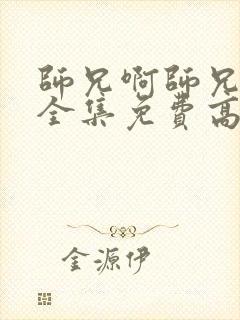 師兄啊師兄
全集免費高
金源伊